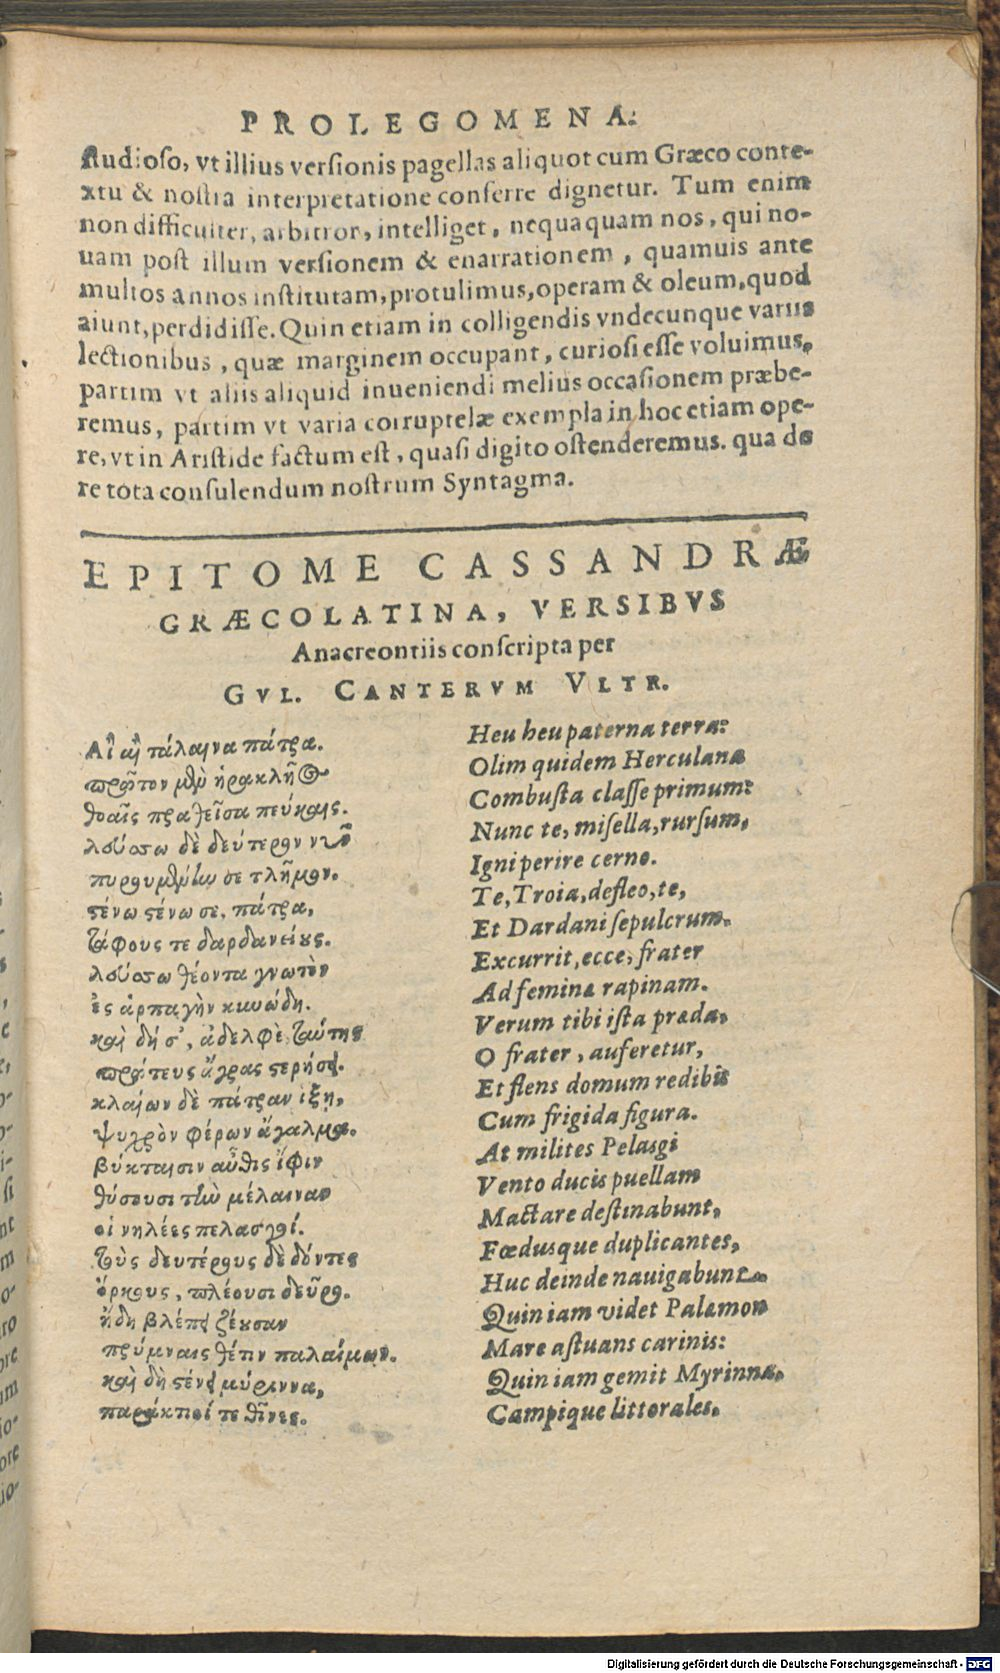 PROLEGOMENA.
ſtudioſo, vt illius verſionis pagellas aliquot cum Græco conte-
xtu & noſtra interpretatione conferre dignetur. Tum enim
non difficulter, arbitror, intelliget, nequaquam nos, qui no-
uam poſt illum verſionem & enarrationem, quamuis ante
multos annos inſtitutam, protulimus, operam & oleum, quod
aiunt, perdidiſſe. Quin etiam in colligendis vndecunque variis
lectionibus, quæ marginem occupant, curioſi eſſe voluimus,
partim vt aliis aliquid inueniendi melius occaſionem præbe-
remus, partim vt varia corruptelæ exempla in hoc etiam ope-
re, vt in Ariſtide factum eſt, quaſi digito oſtenderemus. qua de
re tota conſulendum noſtrum Syntagma.
EPITOME CASSANDRÆ
GRÆCOLATINA, VERSIBVS
Anacreontiis conſcripta per
GVL. CANTERVM VLTR.
Αἲ αἲ τάλαινα πάτρα.
πρῶτον μὲν ἡρακλῆος
θοαῖς πραθεῖσα πεύκαις.
λεύσσω δὲ δεύτερον νῦν
πυρουμένην σε τλῆμον.
στένω στένω σε, πάτρα,
τάφους τε δαρδανείους.
λεύσσω θέοντα γνωτὸν
ἐς ἁρπαγὴν κυνώδη.
καὶ δή σ', ἀδελφὲ, ταύτης
πρώτευς ἄγρας στερήσει.
κλαίων δὲ πάτραν ἵξῃ,
ψυχρὸν φέρων ἄγαλμα.
βύκταισιν αὖθις ἶφιν
θύσουσι τὴν μέλαιναν
οἱ νηλέες πελασγοί.
τοὺς δευτέρους δὲ δόντες
ὅρκους, πλέουσι δεῦρο.
ἤδη βλέπει ζέουσαν
πρύμναις θέτιν παλαίμων.
καὶ δὴ στένει μύριννα,
παράκτιοί τε θῖνες.
Heu heu paterna terra:
Olim quidem Herculana
Combuſta claſſe primum:
Nunc te, miſella, rurſum,
Igni perire cerno.
Te, Troia, defleo, te,
Et Dardani ſepulcrum.
Excurrit, ecce, frater
Ad feminæ rapinam.
Verum tibi iſta præda,
O frater, auferetur,
Et flens domum redibis
Cum frigida figura.
At milites Pelaſgi
Vento ducis puellam
Mactare deſtinabunt,
Fœduſque duplicantes,
Huc deinde nauigabunt.
Quin iam videt Palæmon
Mare æſtuans carinis:
Quin iam gemit Myrinna,
Campique littorales.
Digitalisierung gefördert durch die Deutsche Forschungsgemeinschaft - DFG